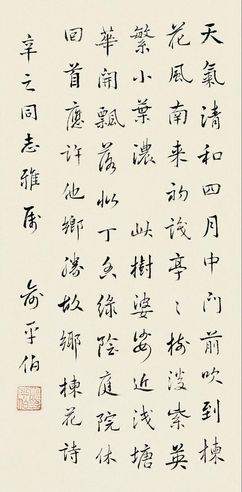 天氣清和四月中门前吹到楝
花風南来初識亭〻樹淡紫英
繁小葉濃 此樹婆娑近浅塘
華開飄落似丁香綠陰庭院休
回首應許他鄉勝故鄉楝花詩
辛之同志雅屬 俞平伯